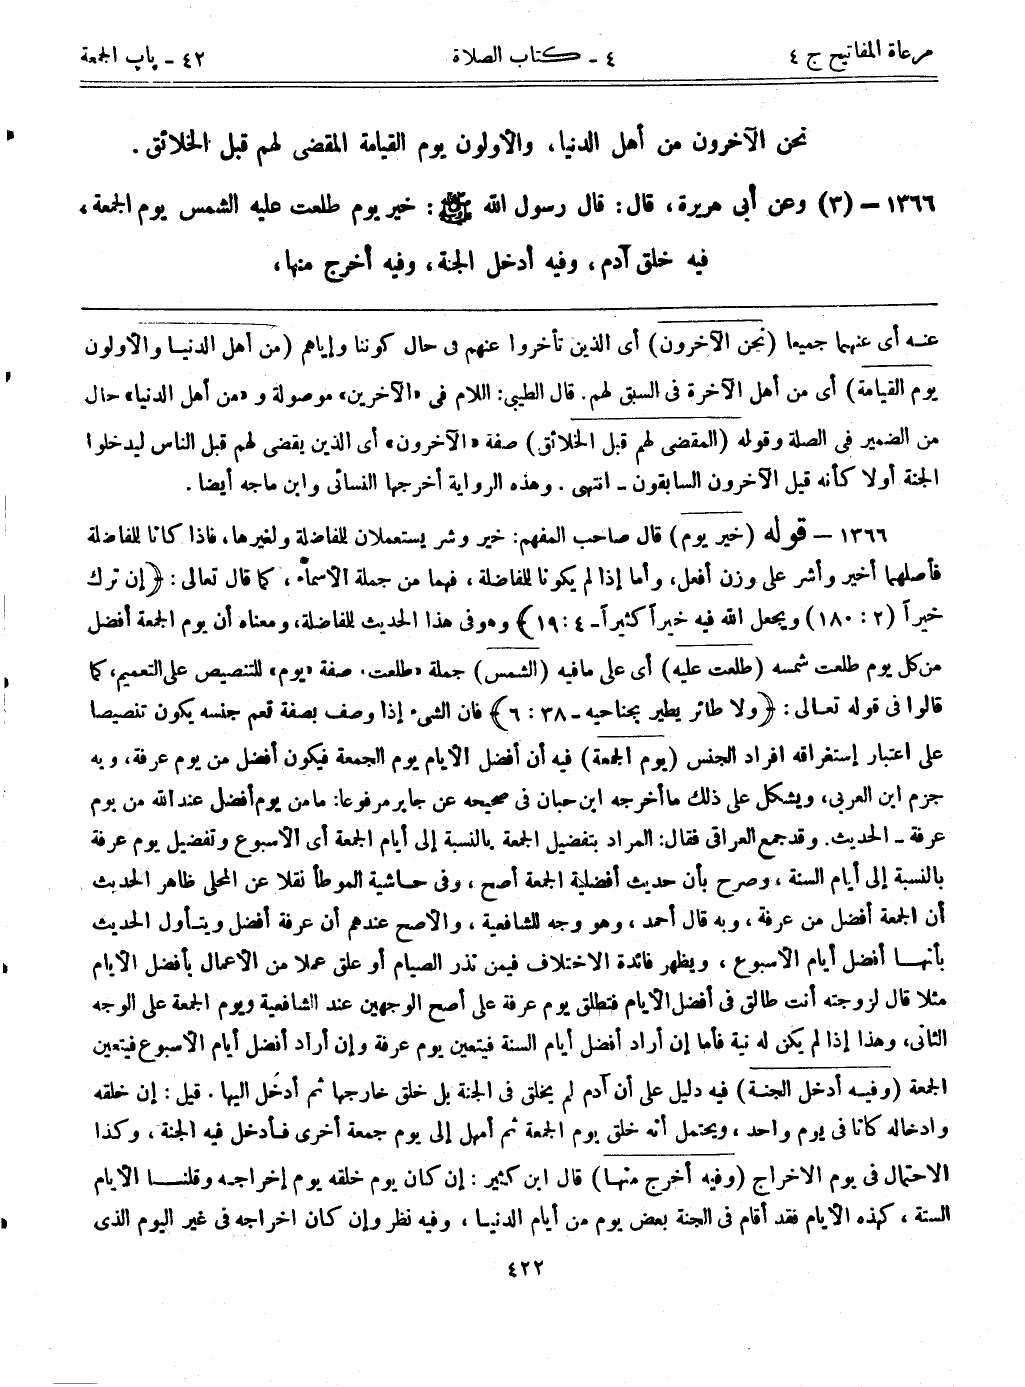 مرعاة المفاتيح ج ٤
٤ ـ كتاب الصلاة
٤٢ ـ باب الجمعة
نحن الآخرون من أهل الدنيا، والأولون يوم القيامة المقضى لهم قبل الخلائق .
١٣٦٦ – (٣) وعن أبى هريرة، قال: قال رسول الله ﷺ: خير يوم طلعت عليه الشمس يوم الجمعة،
فيه خلق آدم، وفيه أدخل الجنة، وفيه أخرج منها،
عنـه أى عنهما جميعا (نحن الآخرون) أى الذين تأخروا عنهم فى حال كوننا وإياهم (من أهل الدنيـا والأولون
يوم القيامة) أى من أهل الآخرة فى السبق لهم. قال الطيبى: اللام فى «الآخرين» موصولة و «من أهل الدنيا» حال
من الضمير فى الصلة وقوله (المقضى لهم قبل الخلائق) صفة «الآخرون» أى الذين يقضى لهم قبل الناس ليدخلوا
الجنة أولا كأنه قيل الآخرون السابقون ـ انتهى . وهذه الرواية أخرجها النسائى وابن ماجه أيضا .
١٣٦٦ – قوله (خير يوم) قال صاحب المفهم: خير وشر يستعملان للفاضلة ولغيرها، فاذا كانا للفاضلة
فأصلهما أخير وأشر على وزن أفعل، وأما إذا لم يكونا للفاضلة ، فهما من جملة الاسماء ، كما قال تعالى: ﴿إن ترك
خيراً (٢ : ١٨٠) ويجعل الله فيه خيراً كثيراً ـ ٤ : ١٩﴾ وهو فى هذا الحديث للفاضلة، ومعناه أن يوم الجمعة أفضل
من كل يوم طلعت شمسه (طلعت عليه) أى على ما فيه (الشمس) جملة «طلعت» صفة «يوم» للتنصيص على التعميم، كما
قالوا فى قوله تعـالى: ﴿ولا طائر يطير بجناحيه ـ ٣٨ : ٦﴾ فان الشىء إذا وصف بصفة تعم جنسه يكون تنصيصا
على اعتبار إستغراقه افراد الجنس (يوم الجمعة) فيه أن أفضل الأيام يوم الجمعة فيكون أفضل من يوم عرفة، وبه
جزم ابن العربى، ويشكل على ذلك ما أخرجه ابن حبان فى صحيحه عن جابر مرفوعا: ما من يوم أفضل عند الله من يوم
عرفة ـ الحديث. وقد جمع العراقى فقال: المراد بتفضيل الجمعة بالنسبة إلى أيام الجمعة أى الأسبوع وتفضيل يوم عرفة
بالنسبة إلى أيام السنة ، وصرح بأن حديث أفضلية الجمعة أصح ، وفى حـاشية الموطأ نقلا عن المحلى ظاهر الحديث
أن الجمعة أفضل من عرفة ، وبه قال أحمد ، وهو وجه للشافعية ، والأصح عندهم أن عرفة أفضل ويتـأول الحديث
بأنهـا أفضل أيام الأسبوع ، ويظهر فائدة الاختلاف فيمن نذر الصيام أو علق عملا من الأعمال بأفضل الأيام
مثلا قال لزوجته أنت طالق فى أفضل الأيام فتطلق يوم عرفة على أصح الوجهين عند الشافعية ويوم الجمعة على الوجه
الثانى، وهذا إذا لم يكن له نية فأما إن أراد أفضل أيام السنة فيتعين يوم عرفة وإن أراد أفضل أيام الأسبوع فيتعين
الجمعة (وفيـه أدخل الجنـة) فيه دليل على أن آدم لم يخلق فى الجنة بل خلق خارجها ثم أدخل اليها . قيل: إن خلقه
وادخاله كانا فى يوم واحد ، ويحتمل أنه خلق يوم الجمعة ثم أمهل إلى يوم جمعة أخرى فـأدخل فيه الجنة ، وكذا
الاحتمال فى يوم الاخراج (وفيه أخرج منها) قال ابن كثير : إن كان يوم خلقه يوم إخراجـه وقلنـا الأيام
الستة ، كهذه الأيام فقد أقام فى الجنة بعض يوم من أيام الدنيـا ، وفيه نظر وإن كان اخراجه فى غير اليوم الذى
٤٢٢